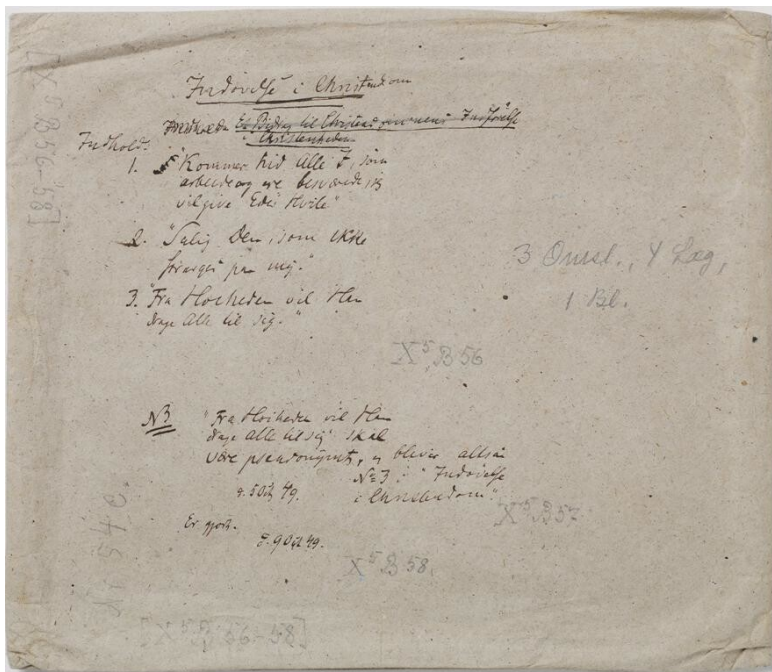 Indøvelse i Christendom
Et Bidrag til Christendommens Indførelse
i Christenheden
Indhold:
1. "Kommer hid alle I, som
arbeide og ere besværede, jeg
vil give Eder Hvile"
2. "Salig Den, som ikke
forarges paa mig."
3. "Fra Høiheden vil Han
drage Alle til sig."
3 Omsl., 4 Læg,
1 Bl.
X⁵ B 56
NB "Fra Høiheden vil Han
drage Alle til sig" skal
være pseudonymt, og bliver altsaa
№ 3 i "Indøvelse
i Christendom".
d. 5 Oct 49.
X⁵ B 57
Er gjort.
d. 9 Oct 49.
X⁵ B 58.
[X⁵ B 56-58]
[X⁵ B 56-58]